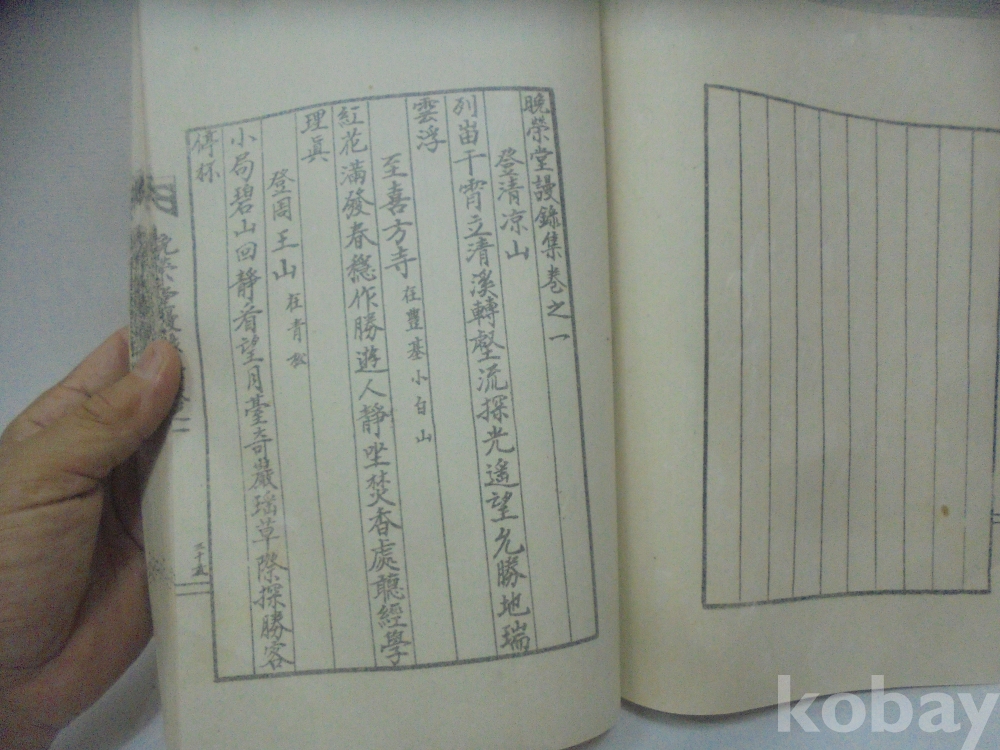 晩榮堂謾錄集卷之一
登清凉山
列峀干霄立清溪轉壑流探光遥望允勝地瑞
雲浮
至喜方寺 在豐基小白山
紅花滿發春穩作勝遊人靜坐焚香處聽經學
理眞
登周王山 在青松
小局碧山回靜看望月臺奇巖瑶草際探勝客
停杯
kobay